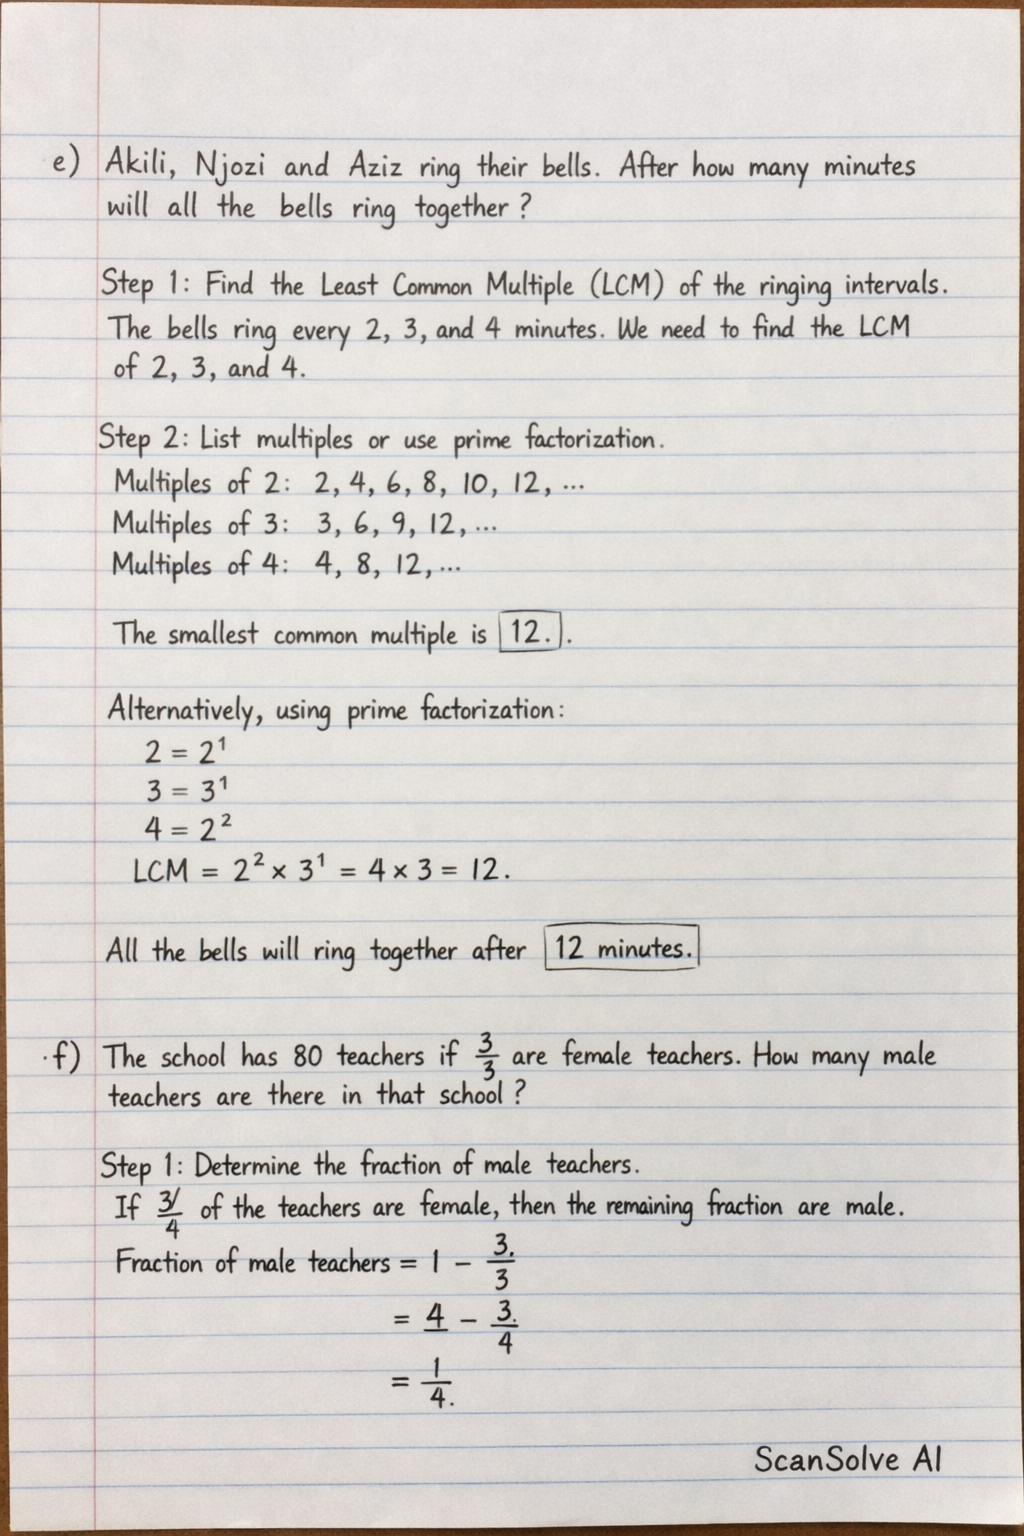 e) Akili, Njozi and Aziz ring their bells. After how many minutes
will all the bells ring together?
Step 1: Find the Least Common Multiple (LCM) of the ringing intervals.
The bells ring every 2, 3, and 4 minutes. We need to find the LCM
of 2, 3, and 4.
Step 2: List multiples or use prime factorization.
Multiples of 2: 2, 4, 6, 8, 10, 12, ...
Multiples of 3: 3, 6, 9, 12, ...
Multiples of 4: 4, 8, 12, ...
The smallest common multiple is 12. .
Alternatively, using prime factorization:
2 = 2¹
3 = 3¹
4 = 2²
LCM = 2² × 3¹ = 4 × 3 = 12.
All the bells will ring together after 12 minutes.
·f) The school has 80 teachers if 3/3 are female teachers. How many male
teachers are there in that school?
Step 1: Determine the fraction of male teachers.
If 3/4 of the teachers are female, then the remaining fraction are male.
Fraction of male teachers = 1 - 3./3
= 4 - 3./4
= 1/4.
ScanSolve AI